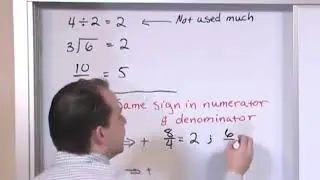 4 ÷ 2 = 2 ← Not used much
3√6 = 2
10/ = 5
Same sign in numerator
& denominator
⇒ + 8/4 = 2 ; 6/
⇒ +